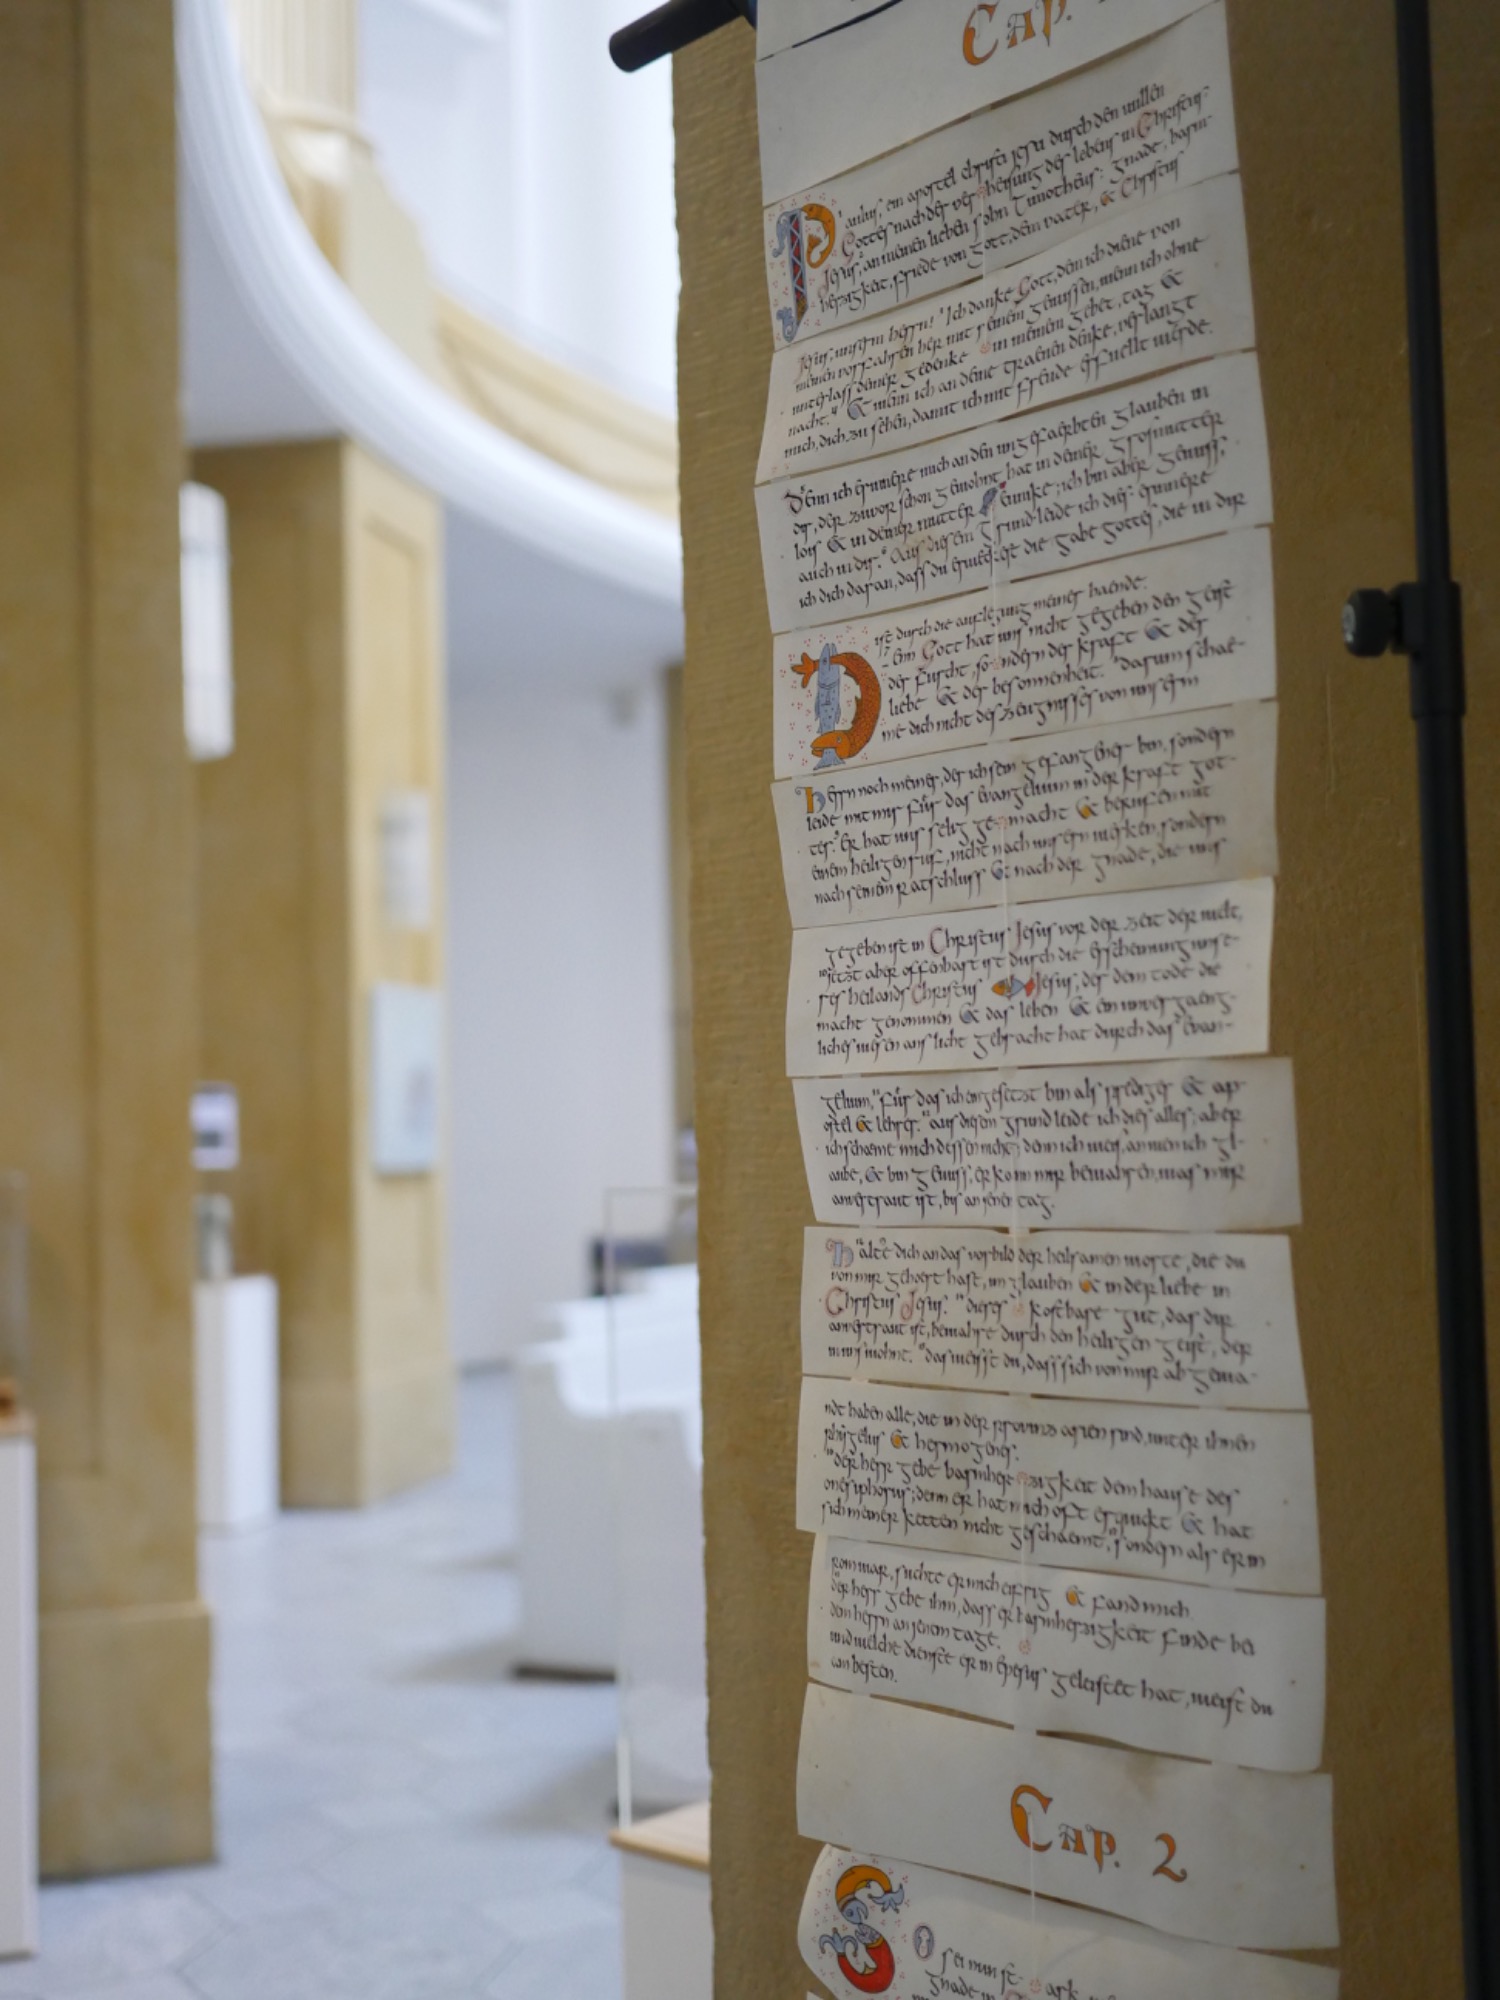 Cap.
Paulus, ein apostel Christi Jesu durch den willen
Gottes nach der verheisung des lebens in Christus
Jesus, an meinen lieben sohn Timotheus: gnade, barm-
herzigkeit, friede von gott, dem vater, & Christus
Jesus, unserm herrn! Ich danke Gott, dem ich diene von
meinen vorfahren her mit reinem gewissen, wenn ich ohne
unterlass deiner gedenke in meinem gebet, tag &
nacht. & wenn ich an deine traenen denke, verlangt
mich, dich zu sehen, damit ich mit freude erfuellt werde.
Denn ich erinnere mich an den ungefaerbten glauben in
dir, der zuvor schon gewohnt hat in deiner grosmutter
lois & in deiner mutter Eunike; ich bin aber gewiss,
auch in dir. Aus diesem grund leide ich dies: erinnere
ich dich daran, dass du erweckest die gabe gottes, die in dir
ist durch die auflegung meiner haende.
Denn Gott hat uns nicht gegeben den geist
der furcht, sondern der kraft & der
liebe & der besonnenheit. darum schae-
me dich nicht des zeugnisses von unserm
Herrn noch meiner, der ich sein gefangener bin, sondern
leide mit mir für das Evangelium in der kraft got-
tes. Er hat uns selig gemacht & berufen mit
einem heiligen ruf, nicht nach unsern werken, sondern
nach seinem ratschluss & nach der gnade, die uns
gegeben ist in Christus Jesus vor der zeit der welt,
jetzt aber offenbart ist durch die Erscheinung unse-
res heilands Christus Jesus, der dem tode die
macht genommen & das leben & ein unvergaeng-
liches wesen ans licht gebracht hat durch das Evan-
gelium, für das ich eingesetzt bin als prediger & ap-
ostel & lehrer. aus diesem grund leide ich dies alles; aber
ich schaeme mich dessen nicht; denn ich weis, an wen ich gl-
aube, & bin gewiss, er kann mir bewahren, was mir
anvertraut ist, bis an jenen tag.
Halte dich an das vorbild der heilsamen worte, die du
von mir gehoert hast, im glauben & in der liebe in
Christus Jesus. dieses kostbare gut, das dir
anvertraut ist, bewahre durch den heiligen geist, der
in uns wohnt. das weisst du, dass sich von mir abgewa-
ndt haben alle, die in der provinz asien sind, unter ihnen
phygelus & hermogenes.
der herr gebe barmherzigkeit dem hause des
onesiphorus; denn er hat mich oft erquickt & hat
sich meiner ketten nicht geschaemt, sondern als er in
rom war, suchte er mich eifrig & fand mich.
der herr gebe ihm, dass er barmherzigkeit finde bei
dem herrn an jenem tage.
und welche dienste er in Epesus geleistet hat, weist du
am besten.
Cap. 2
So sei nun stark
gnade in